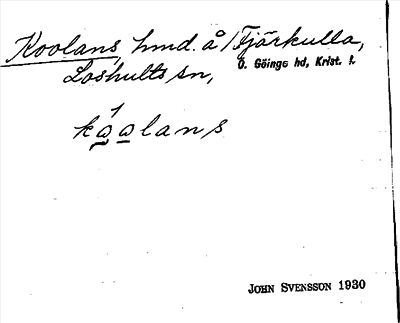 Koolans, hmd. å Tjärkulla,
Loshults sn, Ö. Göinge hd, Krist. l.
koolans
JOHN SVENSSON 1930